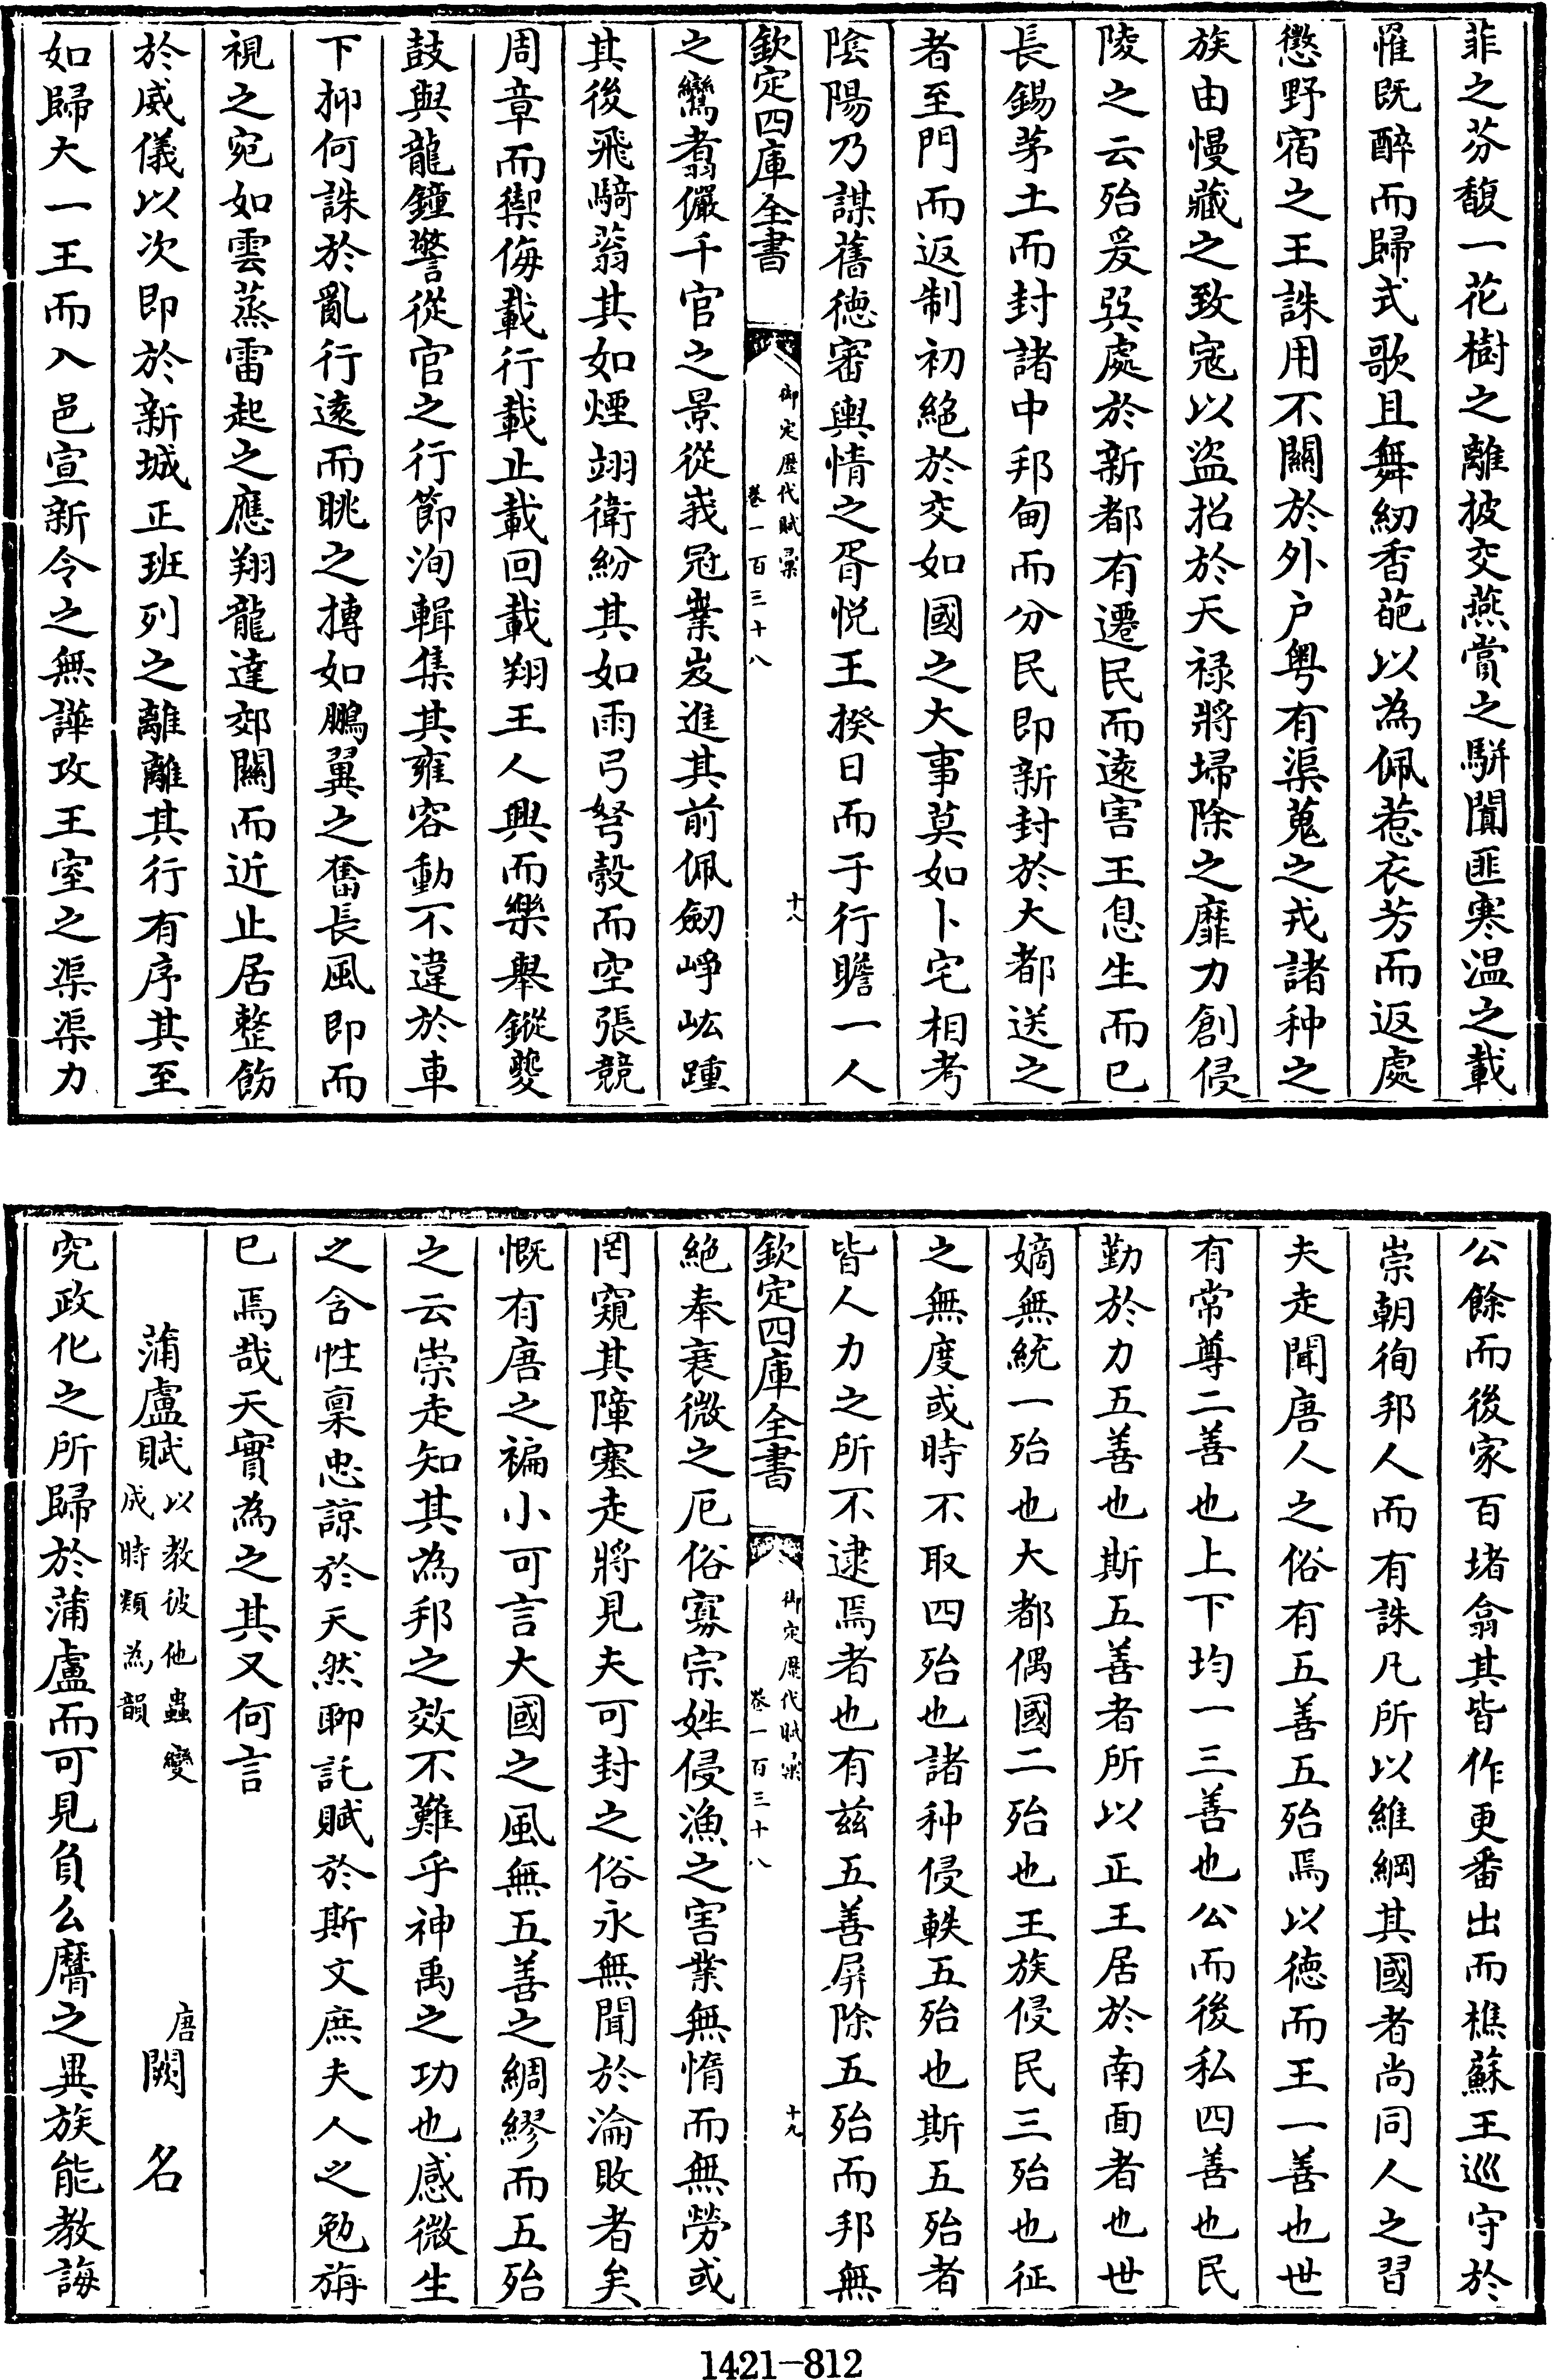 菲之芬馥一花樹之離披交燕賞之駢闐匪寒温之載
罹既醉而歸式歌且舞紉香葩以為佩惹衣芳而返處
懲野宿之王誅用不關於外户粤有渠蒐之戎諸种之
族由慢藏之致宼以盜招於天禄將埽除之靡力創侵
陵之云殆爰巽處於新都有遷民而逺害王息生而已
長錫茅土而封諸中邦甸而分民即新封於大都送之
者至門而返制初絕於交如國之大事莫如卜宅相考
隂陽乃謀舊徳審輿情之胥悦王揆日而于行瞻一人
欽定四庫全書
御定歴代賦彚
卷一百三十八
十八
之鸞翥儼千官之景從峩冠嶪岌進其前佩劒崢岦踵
其後飛騎蓊其如煙翊衛紛其如雨弓弩彀而空張競
周章而禦侮載行載止載回載翔王人興而樂舉鏦鼕
鼓與龍鐘警從官之行節洵輯集其雍容動不違於車
下抑何誅於亂行逺而眺之摶如鵬翼之奮長風即而
視之宛如雲蒸雷起之應翔龍達郊關而近止居整飭
於威儀以次即於新城正班列之離離其行有序其至
如歸大一王而入邑宣新令之無譁攻王室之渠渠力
公餘而後家百堵翕其皆作更番出而樵蘇王巡守於
崇朝徇邦人而有誅凡所以維綱其國者尚同人之習
夫走聞唐人之俗有五善五殆焉以徳而王一善也世
有常尊二善也上下均一三善也公而後私四善也民
勤於力五善也斯五善者所以正王居於南面者也世
嫡無統一殆也大都偶國二殆也王族侵民三殆也征
之無度或時不取四殆也諸种侵軼五殆也斯五殆者
皆人力之所不逮焉者也有兹五善屏除五殆而邦無
欽定四庫全書
御定歴代賦彚
卷一百三十八
十九
絕奉衰微之厄俗寡宗姓侵漁之害業無惰而無勞或
罔窺其障塞走將見夫可封之俗永無聞於淪敗者矣
慨有唐之褊小可言大國之風無五善之綢繆而五殆
之云崇走知其為邦之效不難乎神禹之功也感微生
之含性稟忠諒於天然聊託賦於斯文庶夫人之勉旃
已焉哉天實為之其又何言
蒲盧賦以教彼他蟲變成時類為韻 唐闕名
究政化之所歸於蒲盧而可見負么麿之異族能教誨
1421-812